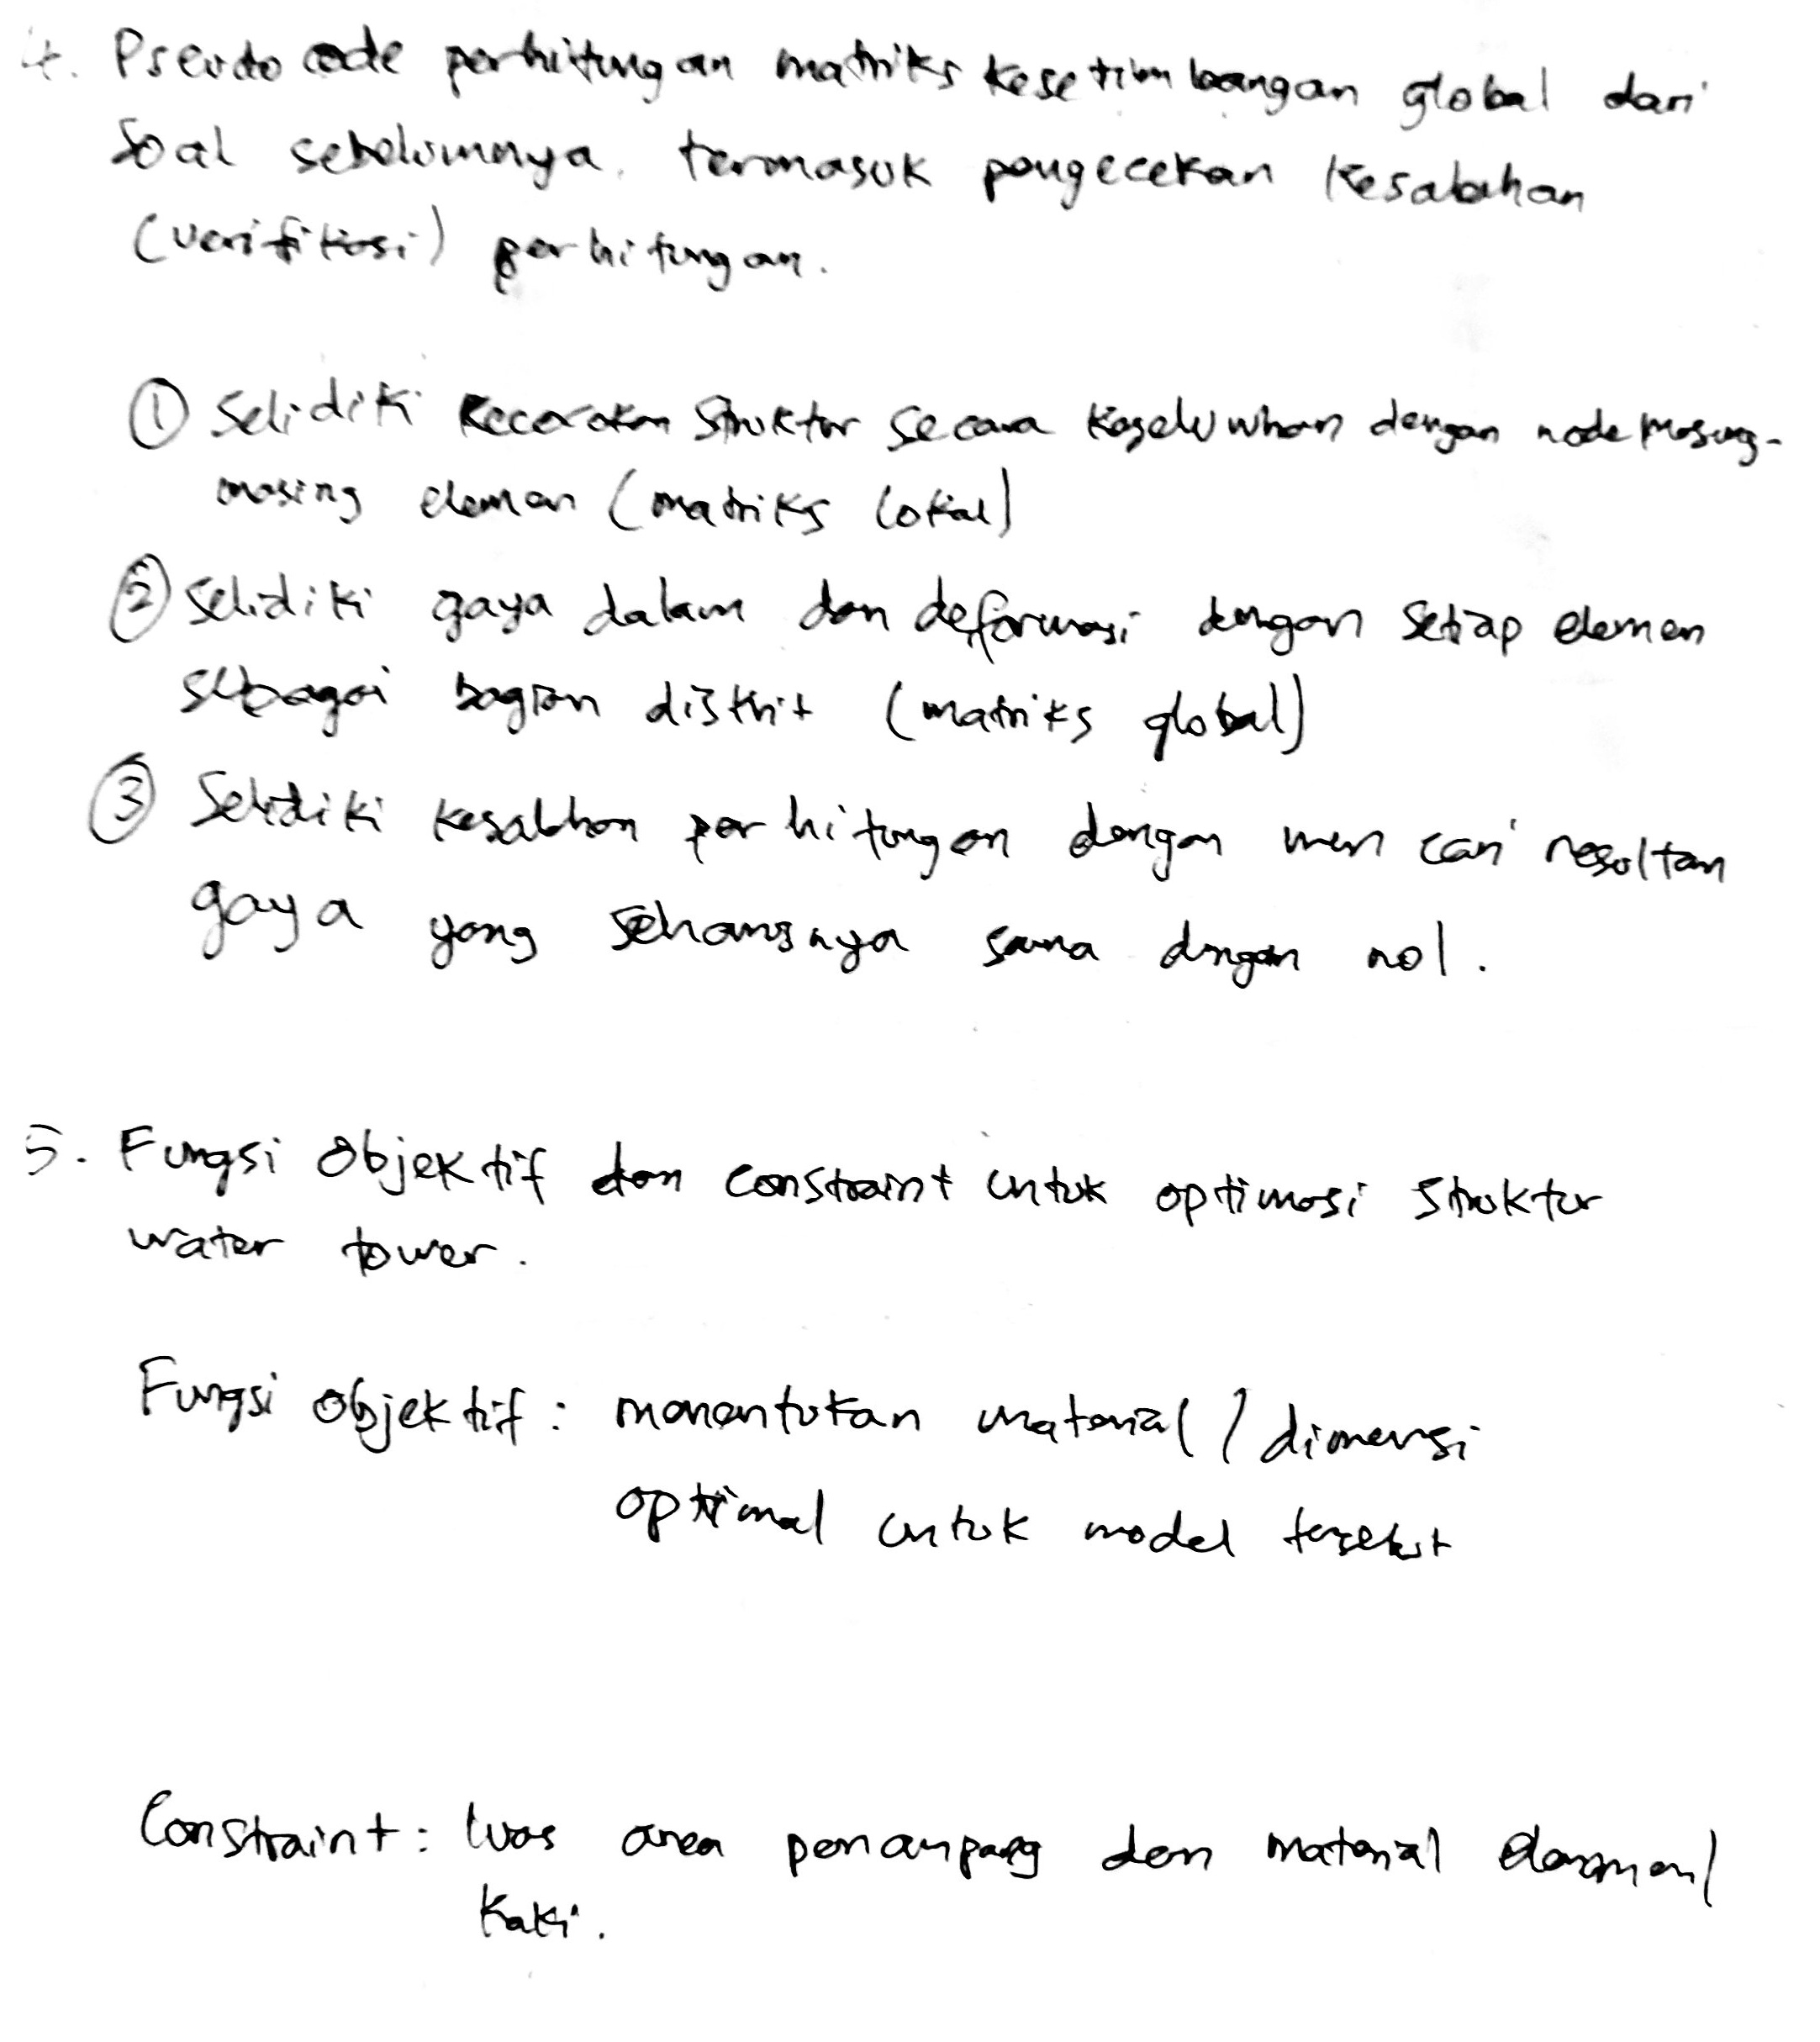 4. Pseudo code perhitungan matriks kesetimbangan global dari
soal sebelumnya, termasuk pengecekan kesalahan
(verifikasi) perhitungan.
① Selidiki struktur secara keseluruhan dengan node masing-
masing elemen (matriks lokal)
② Selidiki gaya dalam dan deformasi dengan setiap elemen
sebagai bagian diskrit (matriks global)
③ Selidiki kesalahan perhitungan dengan mencari resultan
gaya yang seharusnya sama dengan nol.
5. Fungsi Objektif dan constraint untuk optimasi struktur
water tower.
Fungsi objektif: menentukan material / dimensi
optimal untuk model tersebut
Constraint: luas area penampang dan material elemen/
kaki.